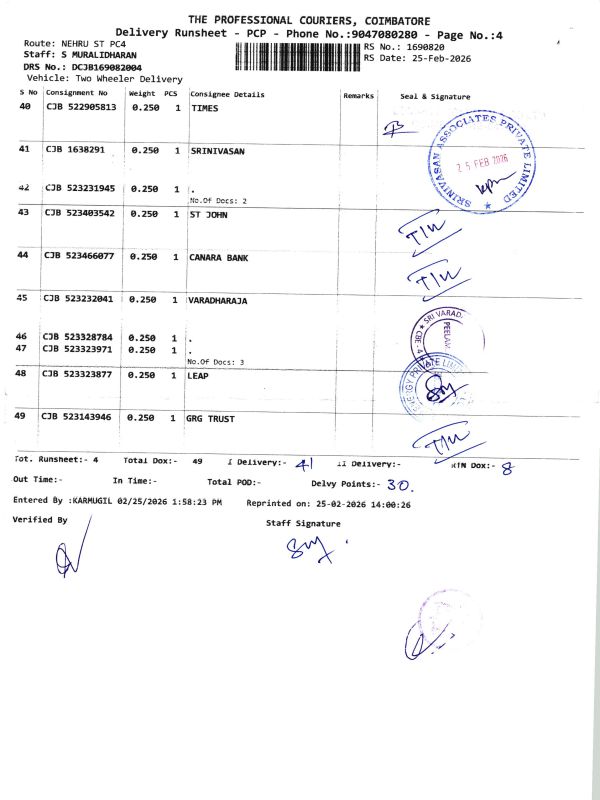 THE PROFESSIONAL COURIERS, COIMBATORE
Delivery Runsheet - PCP - Phone No.:9047080280 - Page No.:4
Route: NEHRU ST PC4
RS No.: 1690820
Staff: S MURALIDHARAN
RS Date: 25-Feb-2026
DRS No.: DCJB169082004
Vehicle: Two Wheeler Delivery
S No Consignment No Weight PCS Consignee Details Remarks Seal & Signature
40 CJB 522905813 0.250 1 TIMES
SRINIVASAN ASSOCIATES PRIVATE LIMITED
25 FEB 2026
41 CJB 1638291 0.250 1 SRINIVASAN
42 CJB 523231945 0.250 1 .
No.Of Docs: 2
43 CJB 523403542 0.250 1 ST JOHN
44 CJB 523466077 0.250 1 CANARA BANK
45 CJB 523232041 0.250 1 VARADHARAJA
SRI VARAD
46 CJB 523328784 0.250 1 .
47 CJB 523323971 0.250 1 .
No.Of Docs: 3
48 CJB 523323877 0.250 1 LEAP
49 CJB 523143946 0.250 1 GRG TRUST
Tot. Runsheet:- 4 Total Dox:- 49 I Delivery:- 41 II Delivery:- RTN Dox:- 8
Out Time:- In Time:- Total POD:- Delvy Points:- 30.
Entered By :KARMUGIL 02/25/2026 1:58:23 PM Reprinted on: 25-02-2026 14:00:26
Verified By Staff Signature